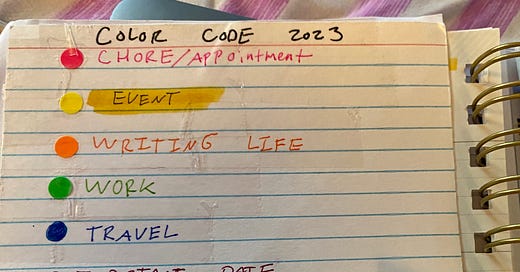 COLOR CODE 2023
CHORE/APPOINTMENT
EVENT
WRITING LIFE
WORK
TRAVEL
DATE